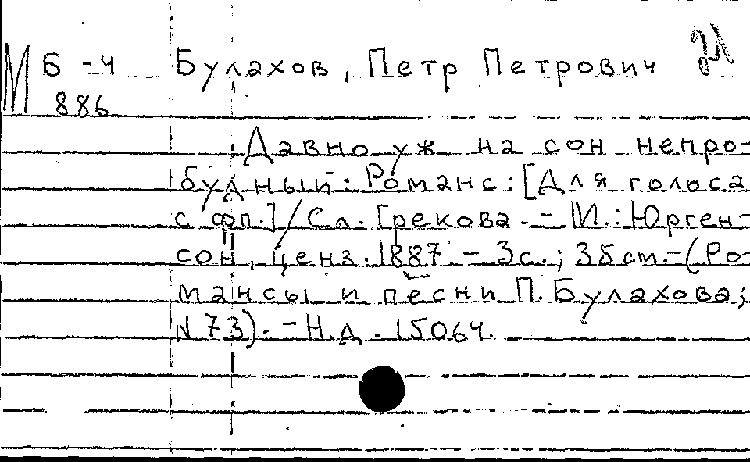 М Б-4 Булахов, Петр Петрович
886
Давно уж на сон непро-
будный: Романс: [Для голоса
с фп.] / Сл. Грекова. - М.: Юрген-
сон, ценз. 1887. - 3с.; 35см. - (Ро-
мансы и песни П. Булахова;
№73). - Н.д. 15064.